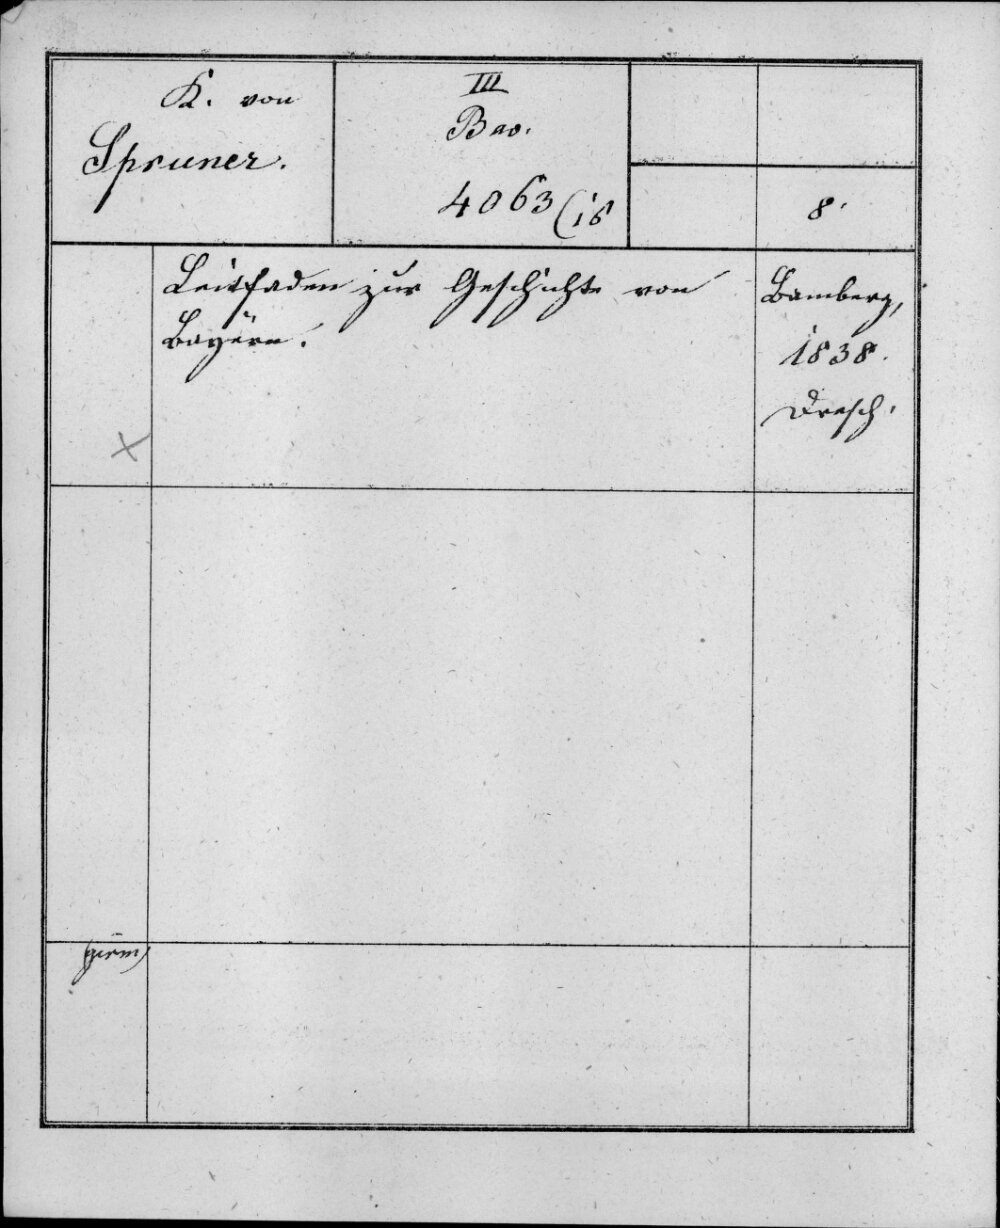 K. von
Spruner.
III
Bav.
4063 (i8
8.
Leitfaden zur Geschichte von
Bayern.
Bamberg,
1838.
Dresch.